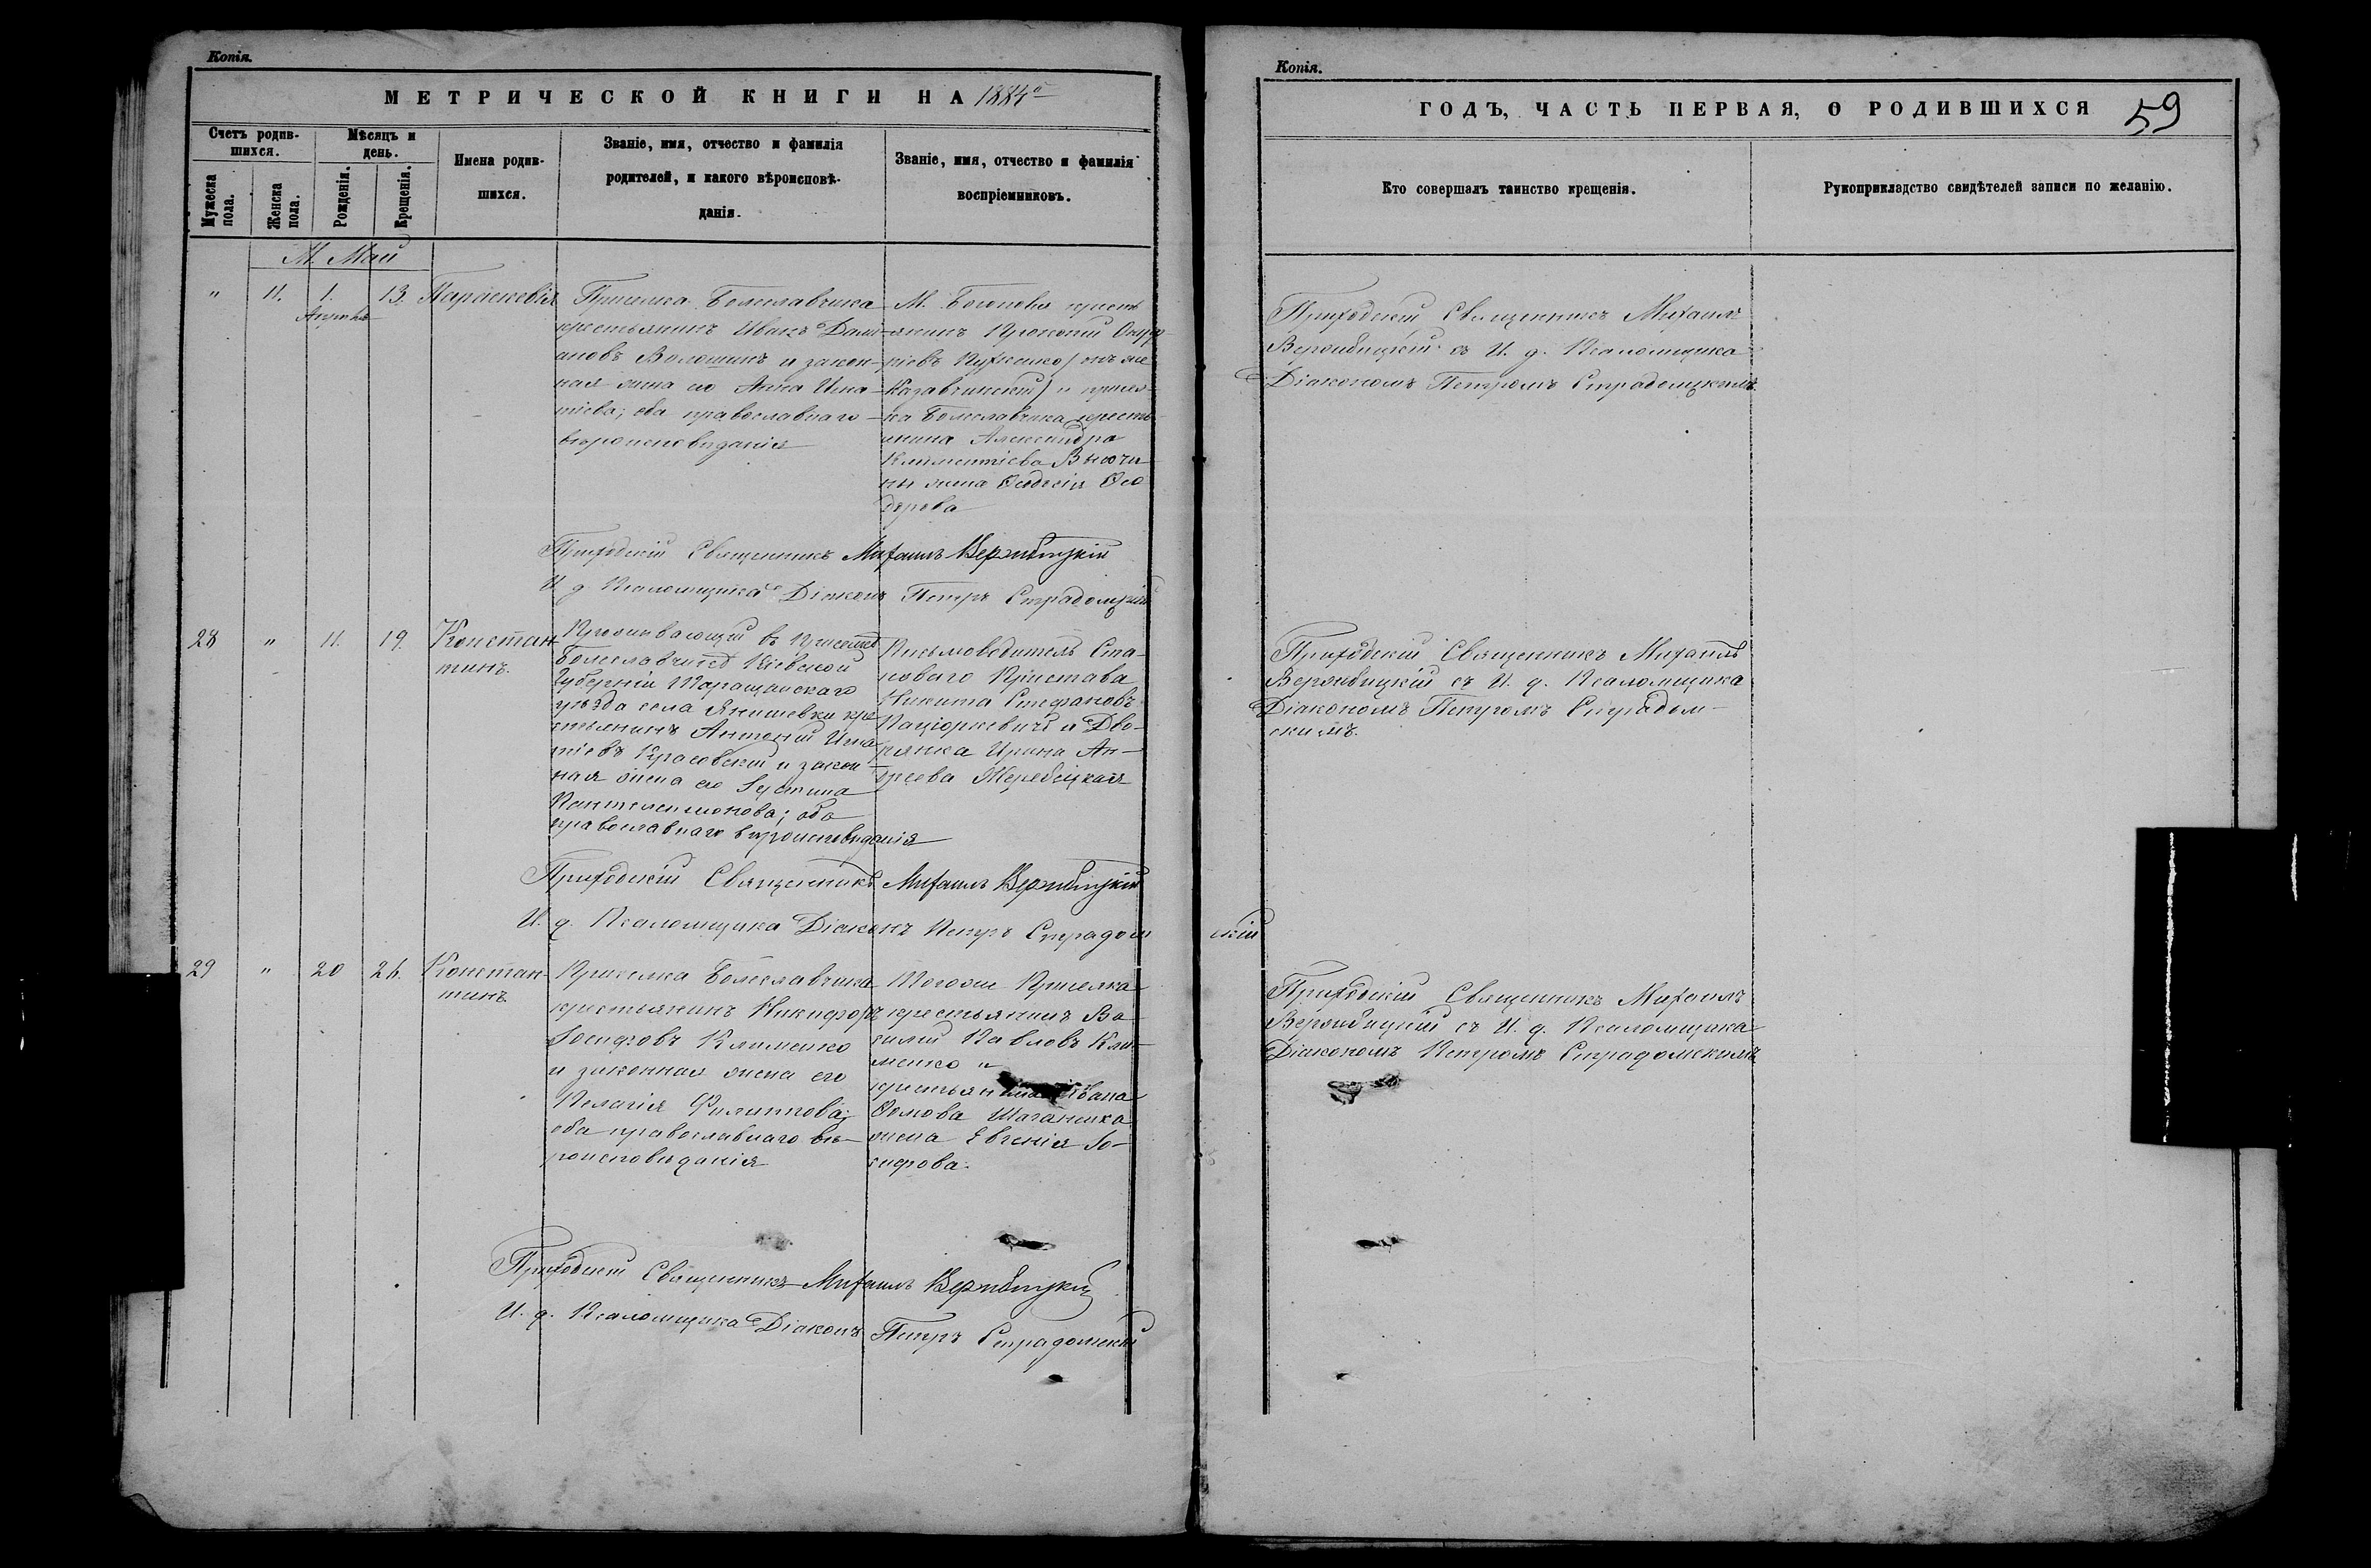 Копія.
МЕТРИЧЕСКОЙ КНИГИ НА 1884й
Счетъ родив-
шихся.
Мѣсяцъ и
день.
Мужеска
пола.
Женска
пола.
Рожденія.
Крещенія.
Имена родив-
шихся.
Званіе, имя, отчество и фамилія
родителей, и какого вѣроисповѣ-
данія.
Званіе, имя, отчество и фамилія
воспріемниковъ.
М. Май
" 11. 1. 13.
Апрѣля
Параскевія
Приселка Болеславчика
крестьянинъ Иванъ Дами-
ановъ Волошинъ и закон-
ная жена его Анна Игна-
тіева; оба православнаго
вѣроисповѣданія
М. Богополя кресть-
янинъ Прокопій Онуф-
ріевъ онъ же
и присел-
ка Болеславчика кресть-
янина Александра
Климентіева
жена Ѳеодосія Ѳео-
дорова
Приходскій Священникъ Михаилъ Вержбицкій
И. д. Псаломщика Діаконъ Петръ Страдомскій
28 " 11. 19.
Констан-
тинъ.
Проживающій въ Приселкѣ
Болеславчикѣ Кіевской
губерніи Таращанскаго
уѣзда села Янишевки кре-
стьянинъ Антоній Игна-
тіевъ Красовскій и закон-
ная жена его Іустина
Пантелеимонова; оба
православнаго вѣроисповѣданія
Письмоводитель Ста-
новаго Пристава
Никита Стефановъ
Пацюркевичъ и Дво-
рянка Ирина Ан-
дреева
Приходскій Священникъ Михаилъ Вержбицкій
И. д. Псаломщика Діаконъ Петръ Страдом
29 " 20 26.
Констан-
тинъ.
Приселка Болеславчика
крестьянинъ Никифоръ
Іосифовъ Клименко
и законная жена его
Пелагія Филиппова;
оба православнаго вѣ-
роисповѣданія
Тогоже Приселка
крестьянинъ Ва-
силій Павловъ Кли-
менко и
крестьянина Ивана
Ѳомова
жена Евгенія Іо-
сифова.
Приходскій Священникъ Михаилъ Вержбицкій
И. д. Псаломщика Діаконъ Петръ Страдомскій
Копія.
ГОДЪ, ЧАСТЬ ПЕРВАЯ, О РОДИВШИХСЯ 59
Кто совершалъ таинство крещенія.
Рукоприкладство свидѣтелей записи по желанію.
Приходскій Священникъ Михаилъ
Вержбицкій съ И. д. Псаломщика
Діакономъ Петромъ Страдомскимъ
Приходскій Священникъ Михаилъ
Вержбицкій съ И. д. Псаломщика
Діакономъ Петромъ Страдом-
скимъ.
скій
Приходскій Священникъ Михаилъ
Вержбицкій съ И. д. Псаломщика
Діакономъ Петромъ Страдомскимъ